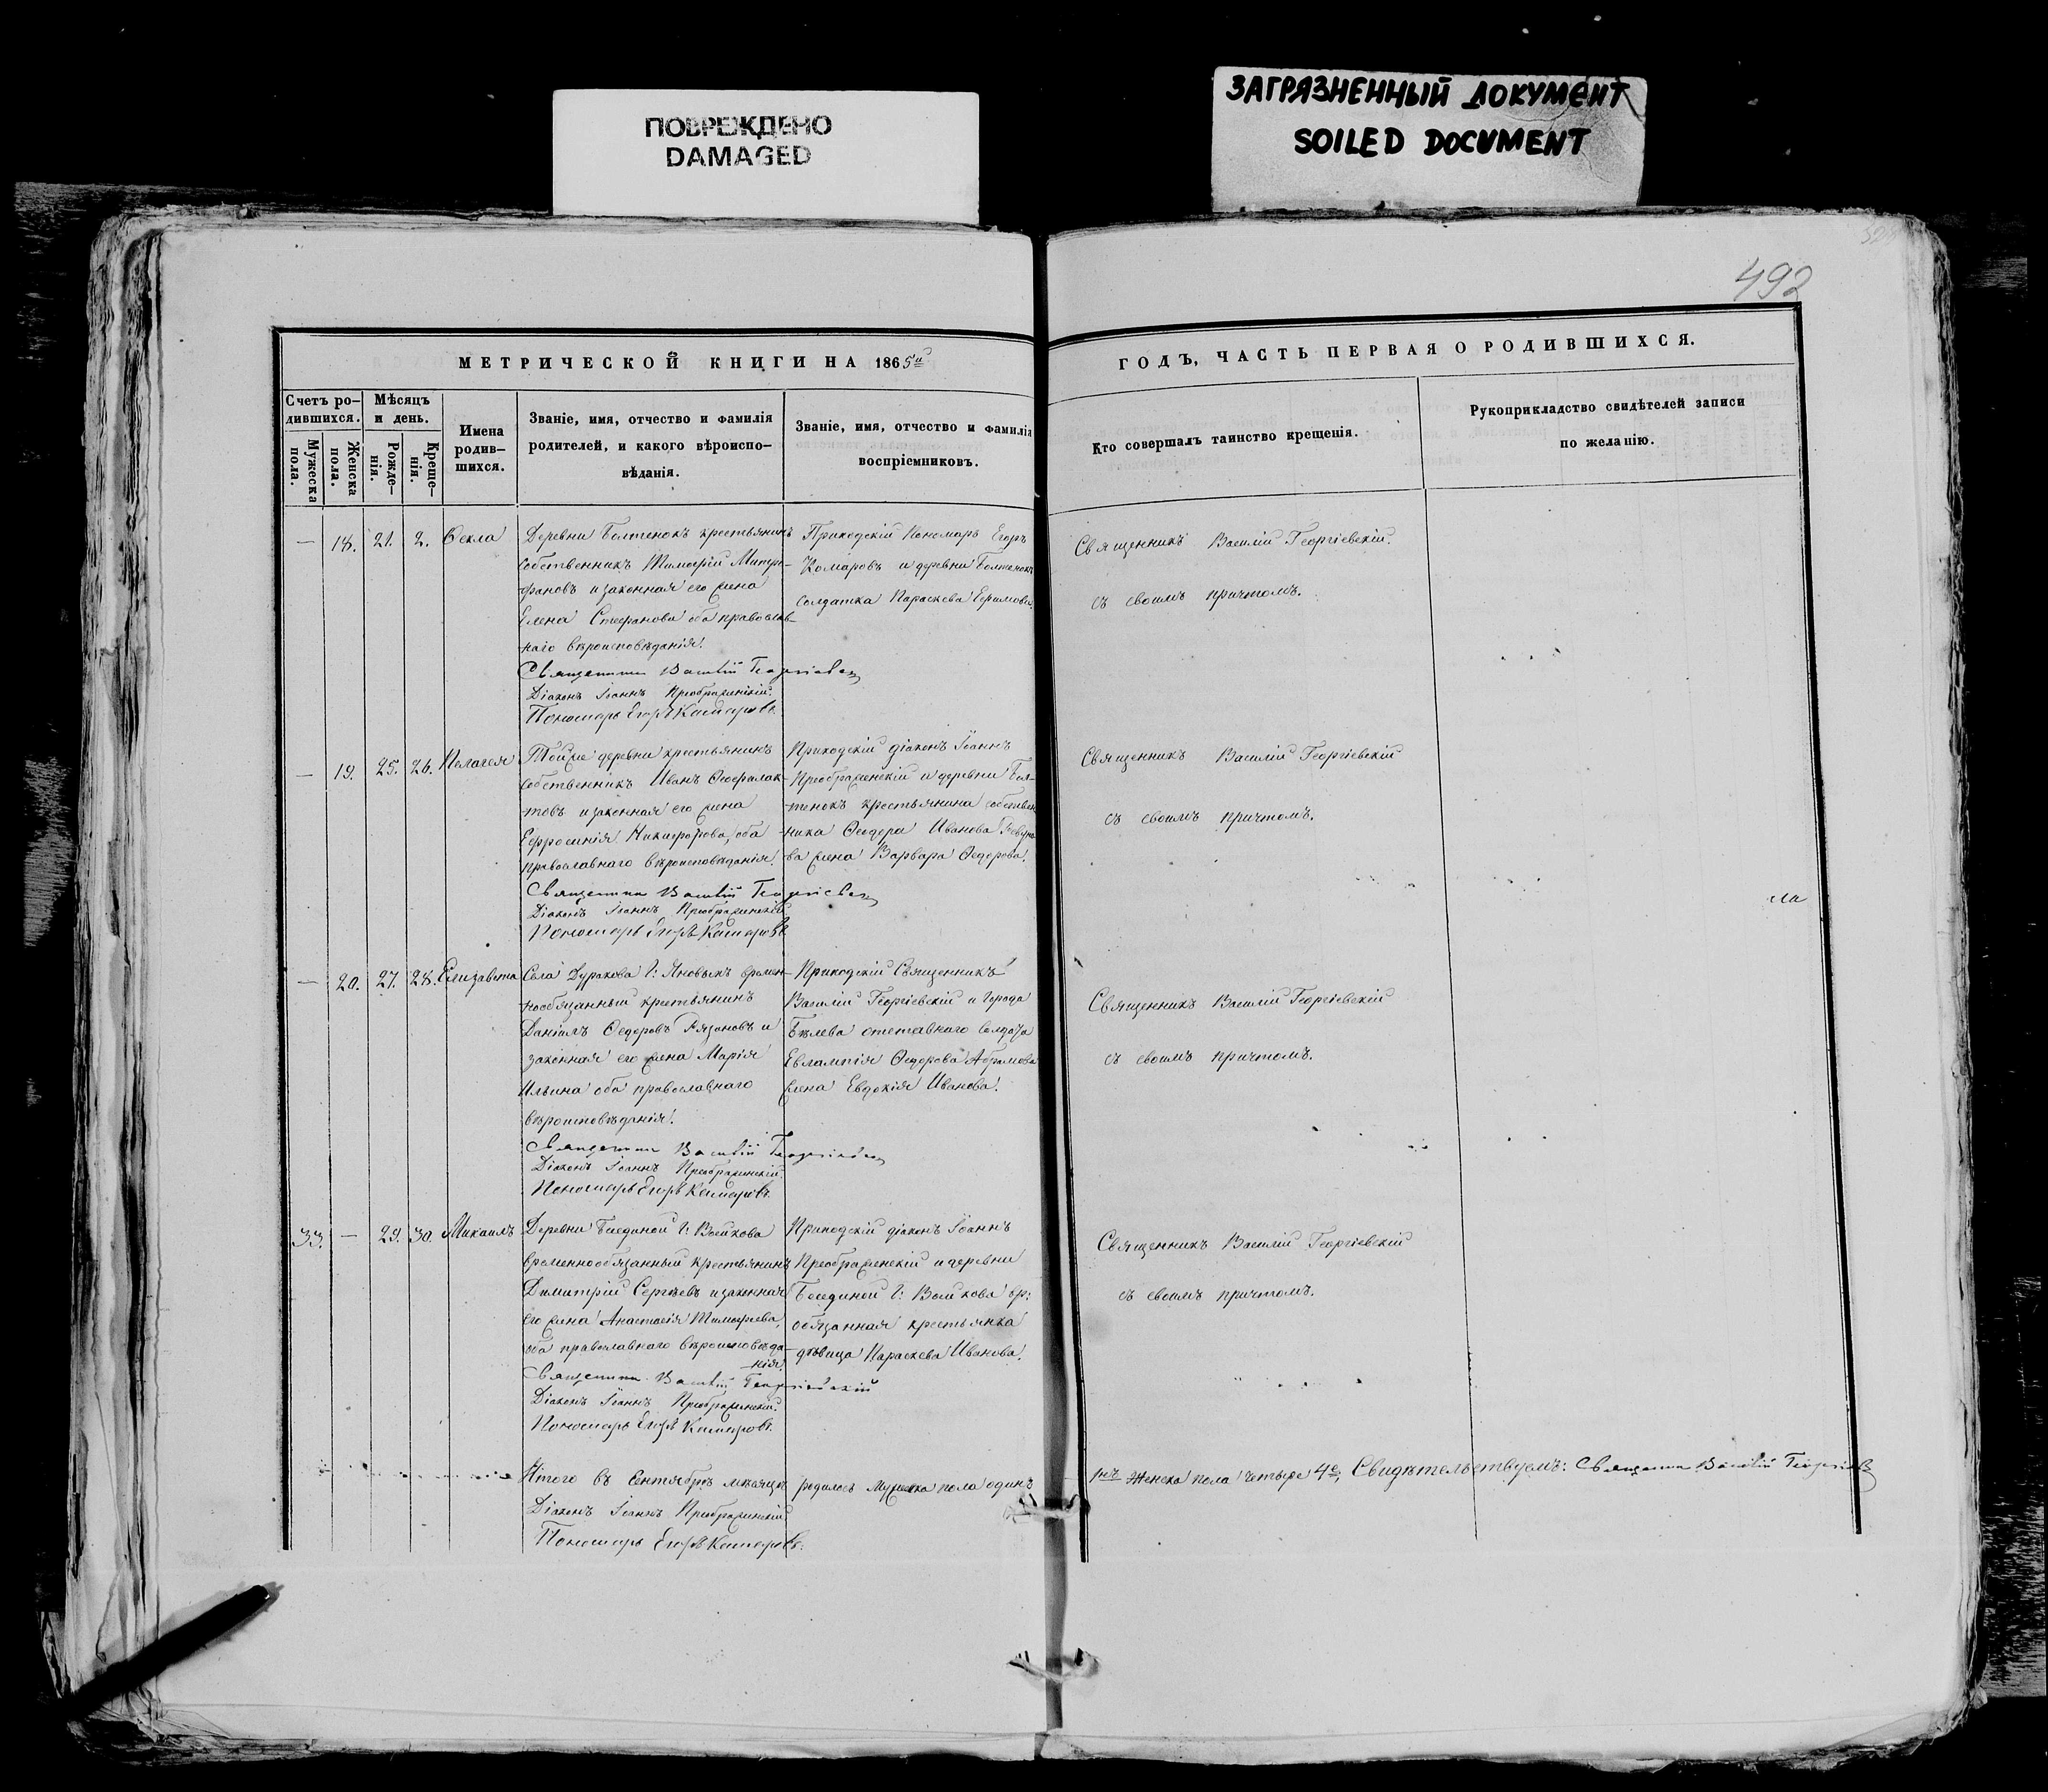 ПОВРЕЖДЕНО
DAMAGED
ЗАГРЯЗНЕННЫЙ ДОКУМЕНТ
SOILED DOCUMENT
492
МЕТРИЧЕСКОЙ КНИГИ НА 1865й
ГОДЪ, ЧАСТЬ ПЕРВАЯ О РОДИВШИХСЯ.
Счетъ ро-
дившихся.
Мужеска
пола.
Женска
пола.
Мѣсяцъ
и день.
Рожде-
нія.
Креще-
нія.
Имена
родив-
шихся.
Званіе, имя, отчество и фамилія
родителей, и какого вѣроиспо-
вѣданія.
Званіе, имя, отчество и фамилія
воспріемниковъ.
Кто совершалъ таинство крещенія.
Рукоприкладство свидѣтелей записи
по желанію.
— 18. 21. 2. Ѳекла
Деревни Болтенокъ крестьянинъ
собственникъ Тимофій Митро-
фановъ и законная его жена
Елена Стефанова оба православ-
наго вѣроисповѣданія.
Священникъ Василій Георгіевскій
Діаконъ Іоаннъ Преображенскій.
Пономарь Егоръ Комаровъ.
Приходскій Пономарь Егоръ
Комаровъ и деревни Болтенокъ
солдатка Параскева Ефимова.
Священникъ Василій Георгіевскій.
съ своимъ причтомъ.
— 19. 25. 26. Пелагея
Той же деревни крестьянинъ
собственникъ Иванъ Ѳеофилак-
товъ и законная его жена
Ефросинія Никифорова, оба
православнаго вѣроисповѣданія.
Священникъ Василій Георгіевскій
Діаконъ Іоаннъ Преображенскій
Пономарь Егоръ Комаровъ
Приходскій діаконъ Іоаннъ
Преображенскій и деревни Бол-
тенокъ крестьянина собствен
ника Ѳеодора Иванова
ва жена Варвара Ѳедорова.
Священникъ Василій Георгіевскій
съ своимъ причтомъ.
— 20. 27. 28. Елизавета
Села Дуракова Г: Яновыхъ времен-
нообязанный крестьянинъ
Даніилъ Ѳедоровъ Рязановъ и
законная его жена Марія
Ильина оба православнаго
вѣроисповѣданія.
Священникъ Василій Георгіевскій
Діаконъ Іоаннъ Преображенскій
Пономарь Егоръ Комаровъ
Приходскій Священникъ
Василій Георгіевскій и Города
Бѣлева отставного солдата
Евлампія Ѳедорова Абрамова
жена Евдокія Иванова.
Священникъ Василій Георгіевскій
съ своимъ причтомъ.
33. — 29. 30. Михаилъ
Деревни Бѣединой Г: Воейкова
временнообязанный крестьянинъ
Димитрій Сергѣевъ и законная
его жена Анастасія Тимофеева,
оба православнаго вѣроисповѣда-
нія.
Священникъ Василій Георгіевскій
Діаконъ Іоаннъ Преображенскій.
Пономарь Егоръ Комаровъ.
Приходскій діаконъ Іоаннъ
Преображенскій и деревни
Бѣединой Г: Воейкова вр:
обязанная крестьянка
дѣвица Параскева Иванова.
Священникъ Василій Георгіевскій
съ своимъ причтомъ.
Итого въ Сентябрѣ мѣсяцѣ родилось Мужеска пола одинъ
Женска пола четыре 4е, Свидѣтельствуемъ: Священникъ Василій Георгіевскій
Діаконъ Іоаннъ Преображенскій
Пономарь Егоръ Комаровъ.